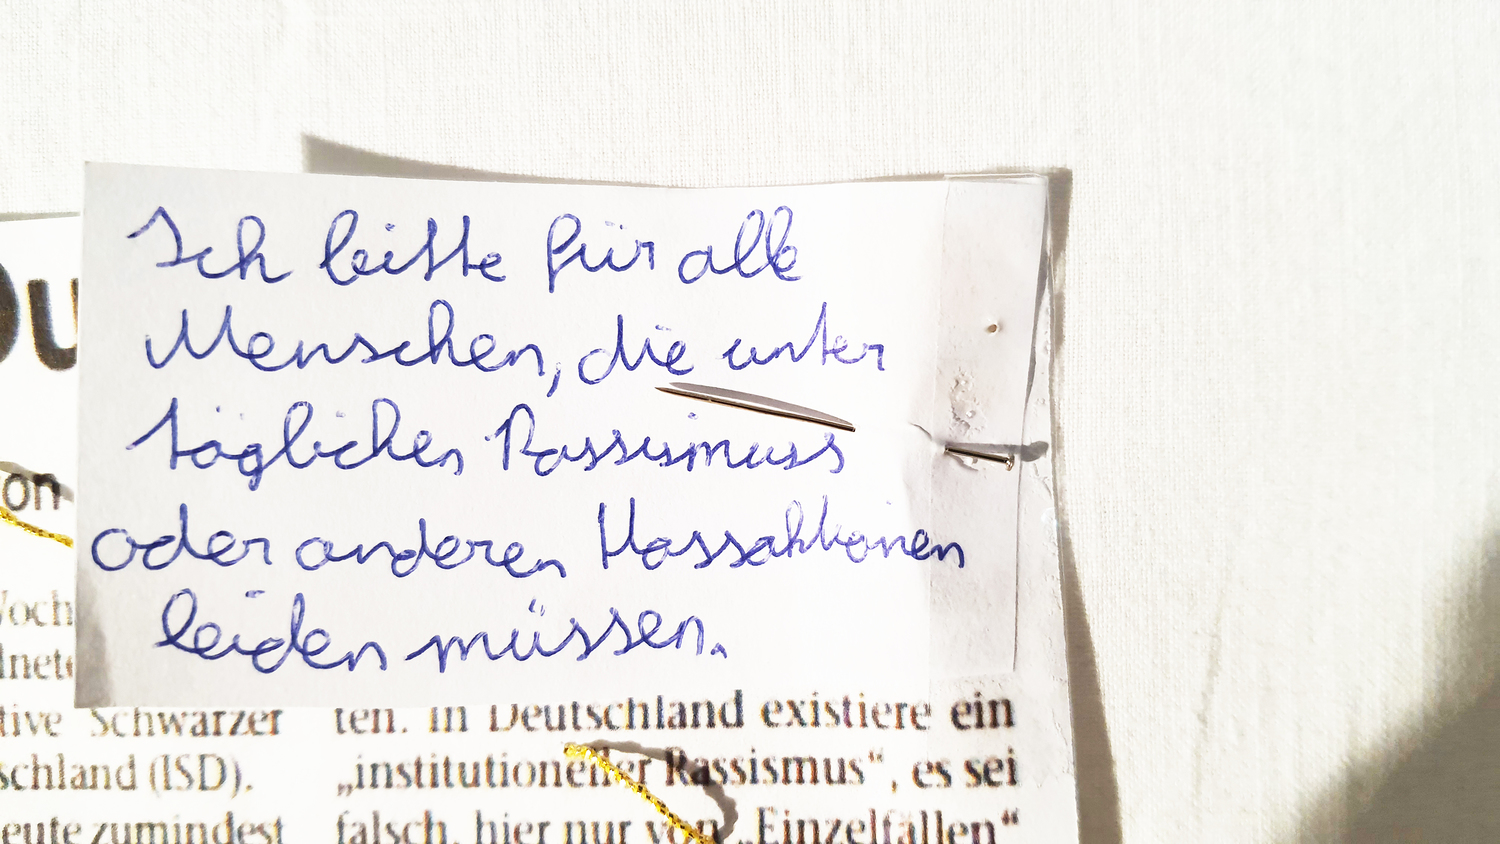 Ich bitte für alle
Menschen, die unter
täglichen Rassismuss
oder anderen Hassaktionen
leiden müssen.
Du
on
Woch
dnete
tive Schwarzer
schland (ISD).
eute zumindest
ten. In Deutschland existiere ein
„institutioneller Rassismus“, es sei
falsch, hier nur von „Einzelfällen“